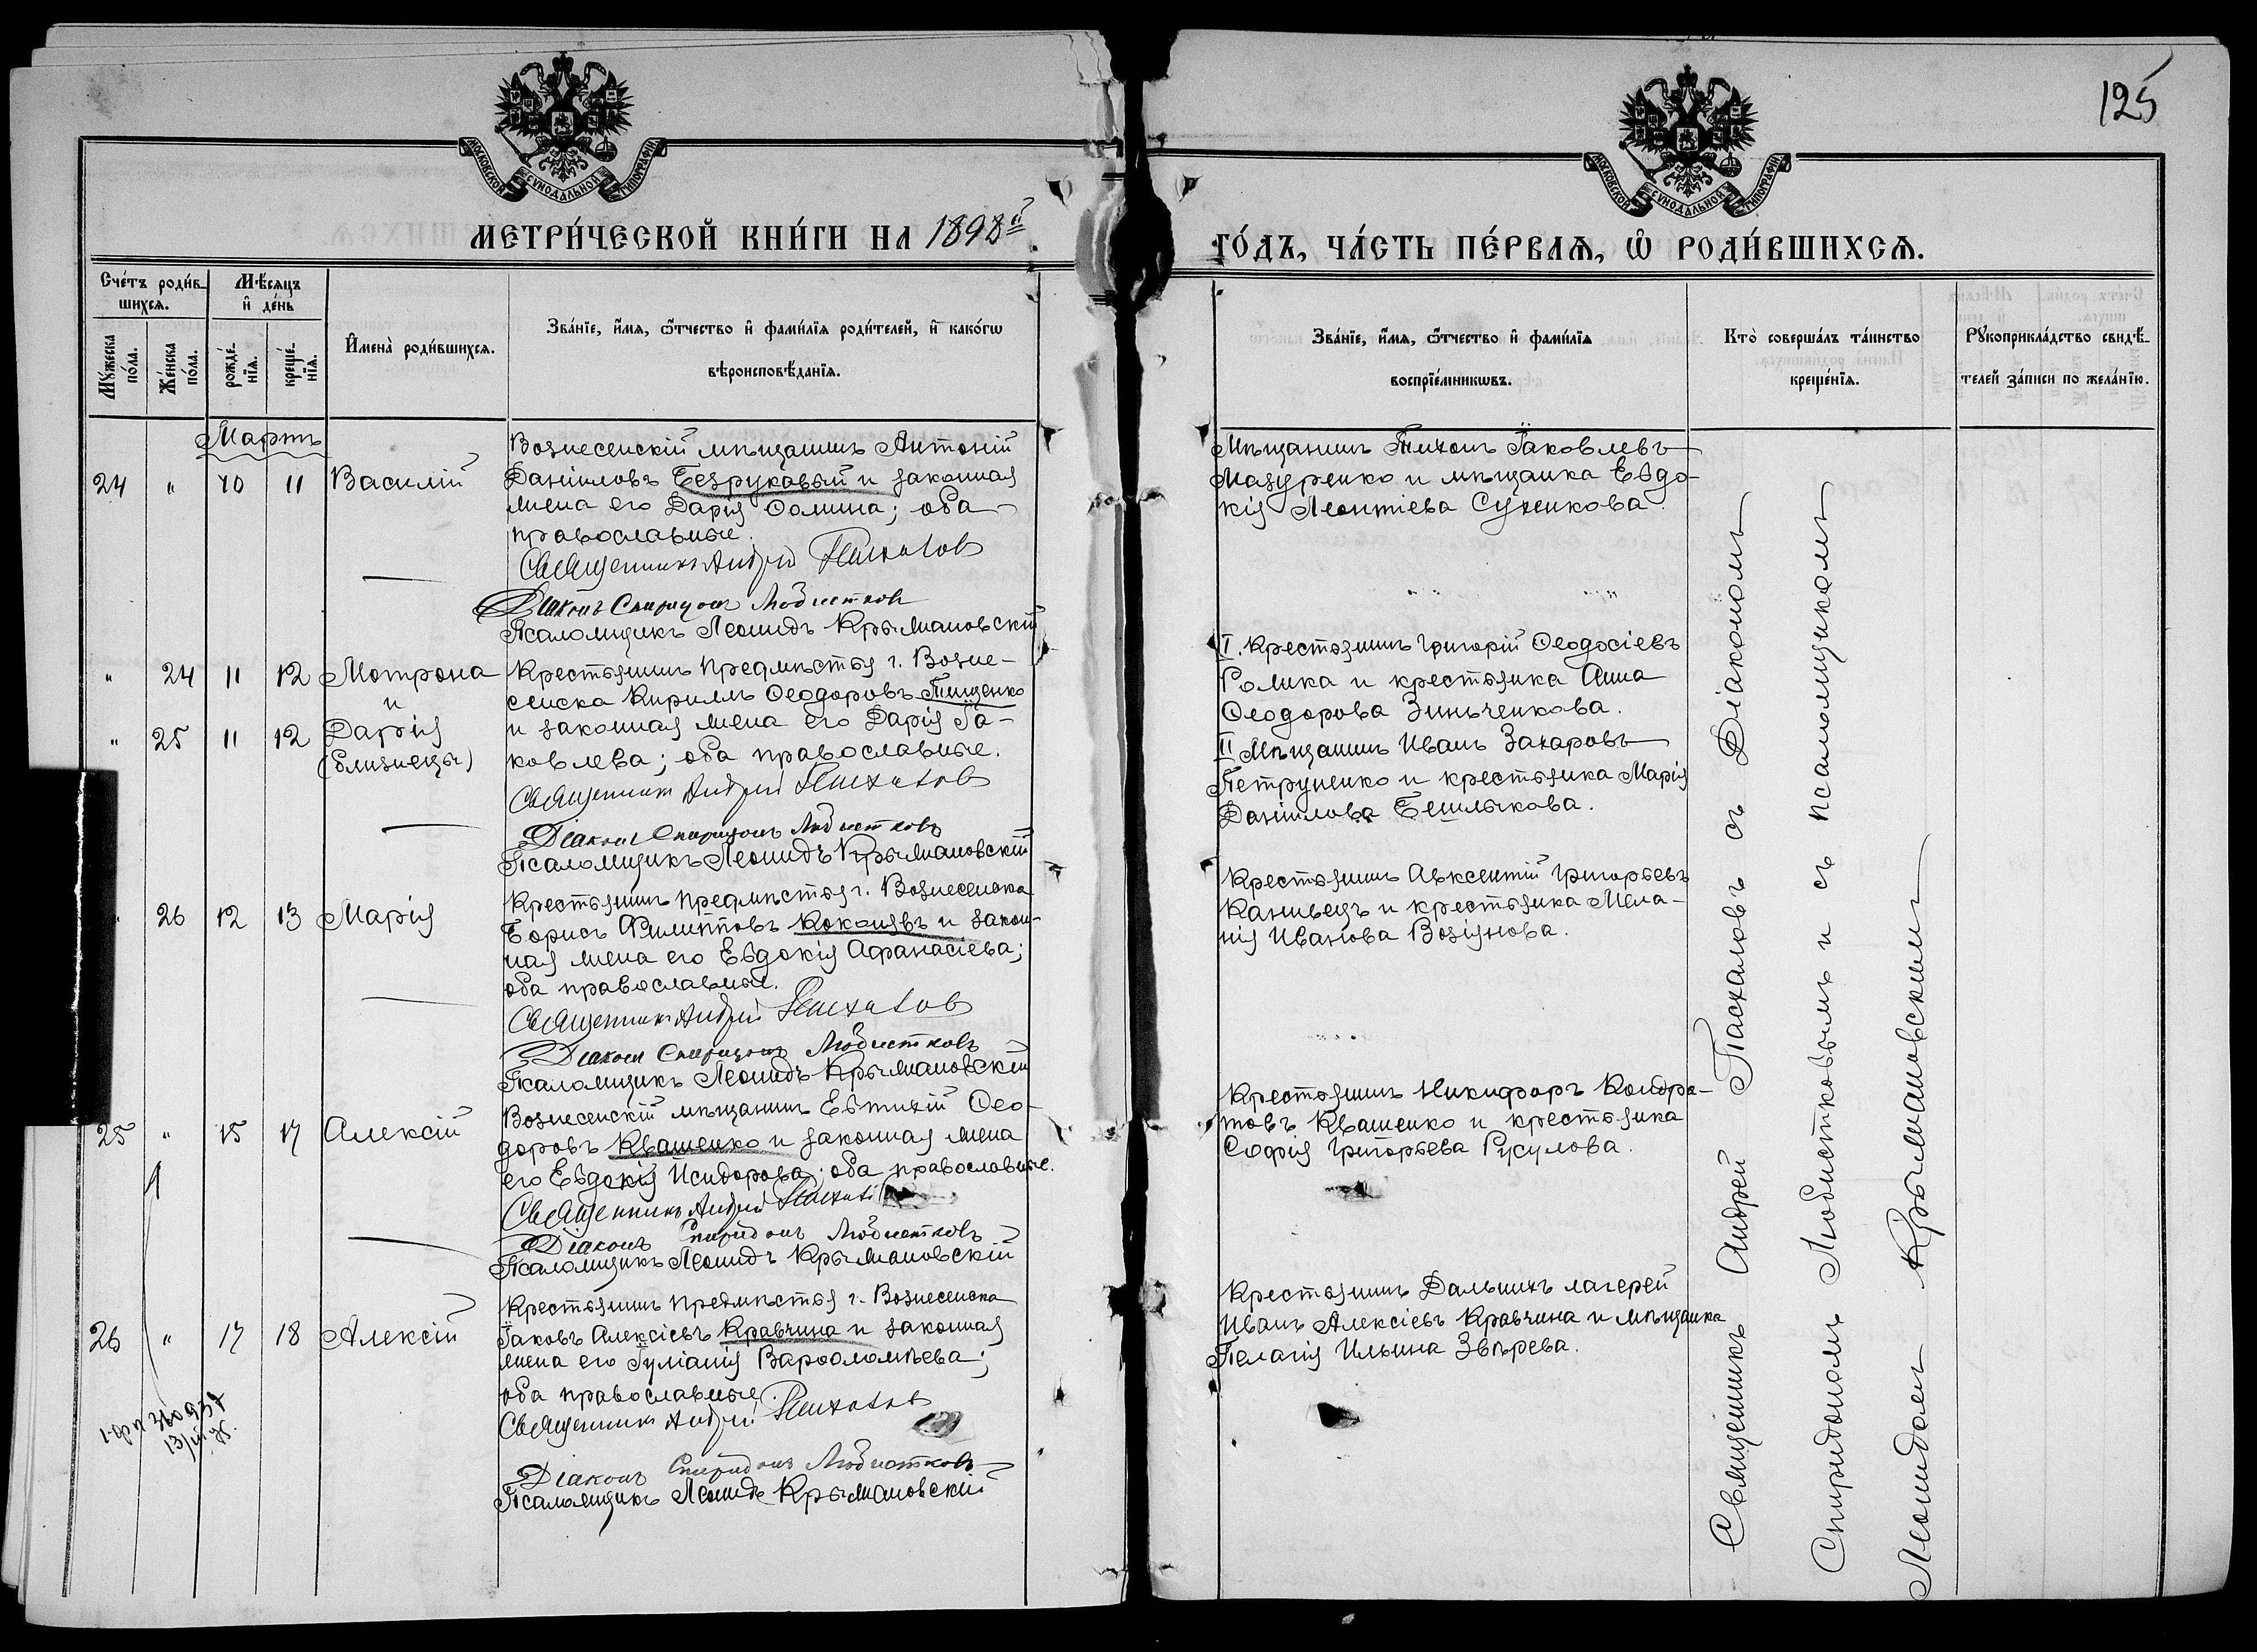 125
МОСКОВСКОЙ СУНОДАЛЬНОЙ ТИПОГРАФІИ
МОСКОВСКОЙ СУНОДАЛЬНОЙ ТИПОГРАФІИ
МЕТРИ́ЧЕСКОЙ КНИ́ГИ НА 1898й
ГО́ДЪ, ЧА́СТЬ ПЕ́РВАѦ, Ѡ РОДИ́ВШИХСѦ.
Сче́тъ роди́в-
шихсѧ.
Му́жеска по́ла.
Же́нска по́ла.
Мѣ́сяцъ
и де́нь
рожде́-
нїѧ.
креще́-
нїѧ.
Имена̀ роди́вшихсѧ.
Зва́нїе, и́мѧ, ѻ́тчество и фами́лїѧ роди́телей, и како́гѡ
вѣроисповѣ́данїѧ.
Зва́нїе, и́мѧ, ѻ́тчество и фами́лїѧ
воспрїе́мникѡвъ.
Кто̀ соверша́лъ та́инство
креще́нїѧ.
Рукоприкла́дство свидѣ́-
телей за́писи по жела́нїю.
Мартъ
24 " 10 11 Василій
Вознесенскій мѣщанинъ Антоній
Даніиловъ Безрукавый и законная
жена его Дарія Ѳомина; оба
православные.
Священникъ Андрей Пасхаловъ
Діаконъ Спиридонъ Любистковъ
Псаломщикъ Леонидъ Крыжановскій
Мѣщанинъ Тихонъ Іаковлевъ
Мазуренко и мѣщанка Евдо-
кія Леонтіева Сученкова.
" 24 11 12 Мотрона
и
" 25 11 12 Дарія
(близнецы)
Крестьянинъ предмѣстья г. Возне-
сенска Кириллъ Ѳеодоровъ Тищенко
и законная жена его Дарія Іа-
ковлева; оба православные.
Священникъ Андрей Пасхаловъ
Діаконъ Спиридонъ Любистковъ
Псаломщикъ Леонидъ Крыжановскій
I. Крестьянинъ Григорій Ѳеодосіевъ
Голика и крестьянка Анна
Ѳеодорова Зинченкова.
II Мѣщанинъ Иванъ Захаровъ
Петруненко и крестьянка Марія
Даніилова Бешлыкова.
" 26 12 13 Марія
Крестьянинъ предмѣстья г. Вознесенска
Борисъ Филипповъ Коконявъ и закон-
ная жена его Евдокія Афанасіева;
оба православные.
Священникъ Андрей Пасхаловъ
Діаконъ Спиридонъ Любистковъ
Псаломщикъ Леонидъ Крыжановскій
Крестьянинъ Авксентій Григорьевъ
Канивецъ и крестьянка Мела-
нія Иванова Возіянова.
25 " 15 17 Алексій
Вознесенскій мѣщанинъ Евтихій Ѳео-
доровъ Квашенко и законная жена
его Евдокія Исидорова; оба православные.
Священникъ Андрей
Діаконъ Спиридонъ Любистковъ
Псаломщикъ Леонидъ Крыжановскій
Крестьянинъ Никифоръ Кондра-
товъ Квашенко и крестьянка
Софія Григорьева Русулова.
26 " 17 18 Алексій
Крестьянинъ предмѣстья г. Вознесенска
Іаковъ Алексіевъ Кравчина и законная
жена его Іуліанія Варѳоломѣева;
оба православные.
Священникъ Андрей Пасхаловъ
Діаконъ Спиридонъ Любистковъ
Псаломщикъ Леонидъ Крыжановскій
Крестьянинъ Дальнихъ лагерей
Иванъ Алексіевъ Кравчина и мѣщанка
Пелагія Ильина Звѣрева.
Священникъ Андрей Пасхаловъ съ Діакономъ
Спиридономъ Любистковымъ и съ псаломщикомъ
Леонидомъ Крыжановскимъ